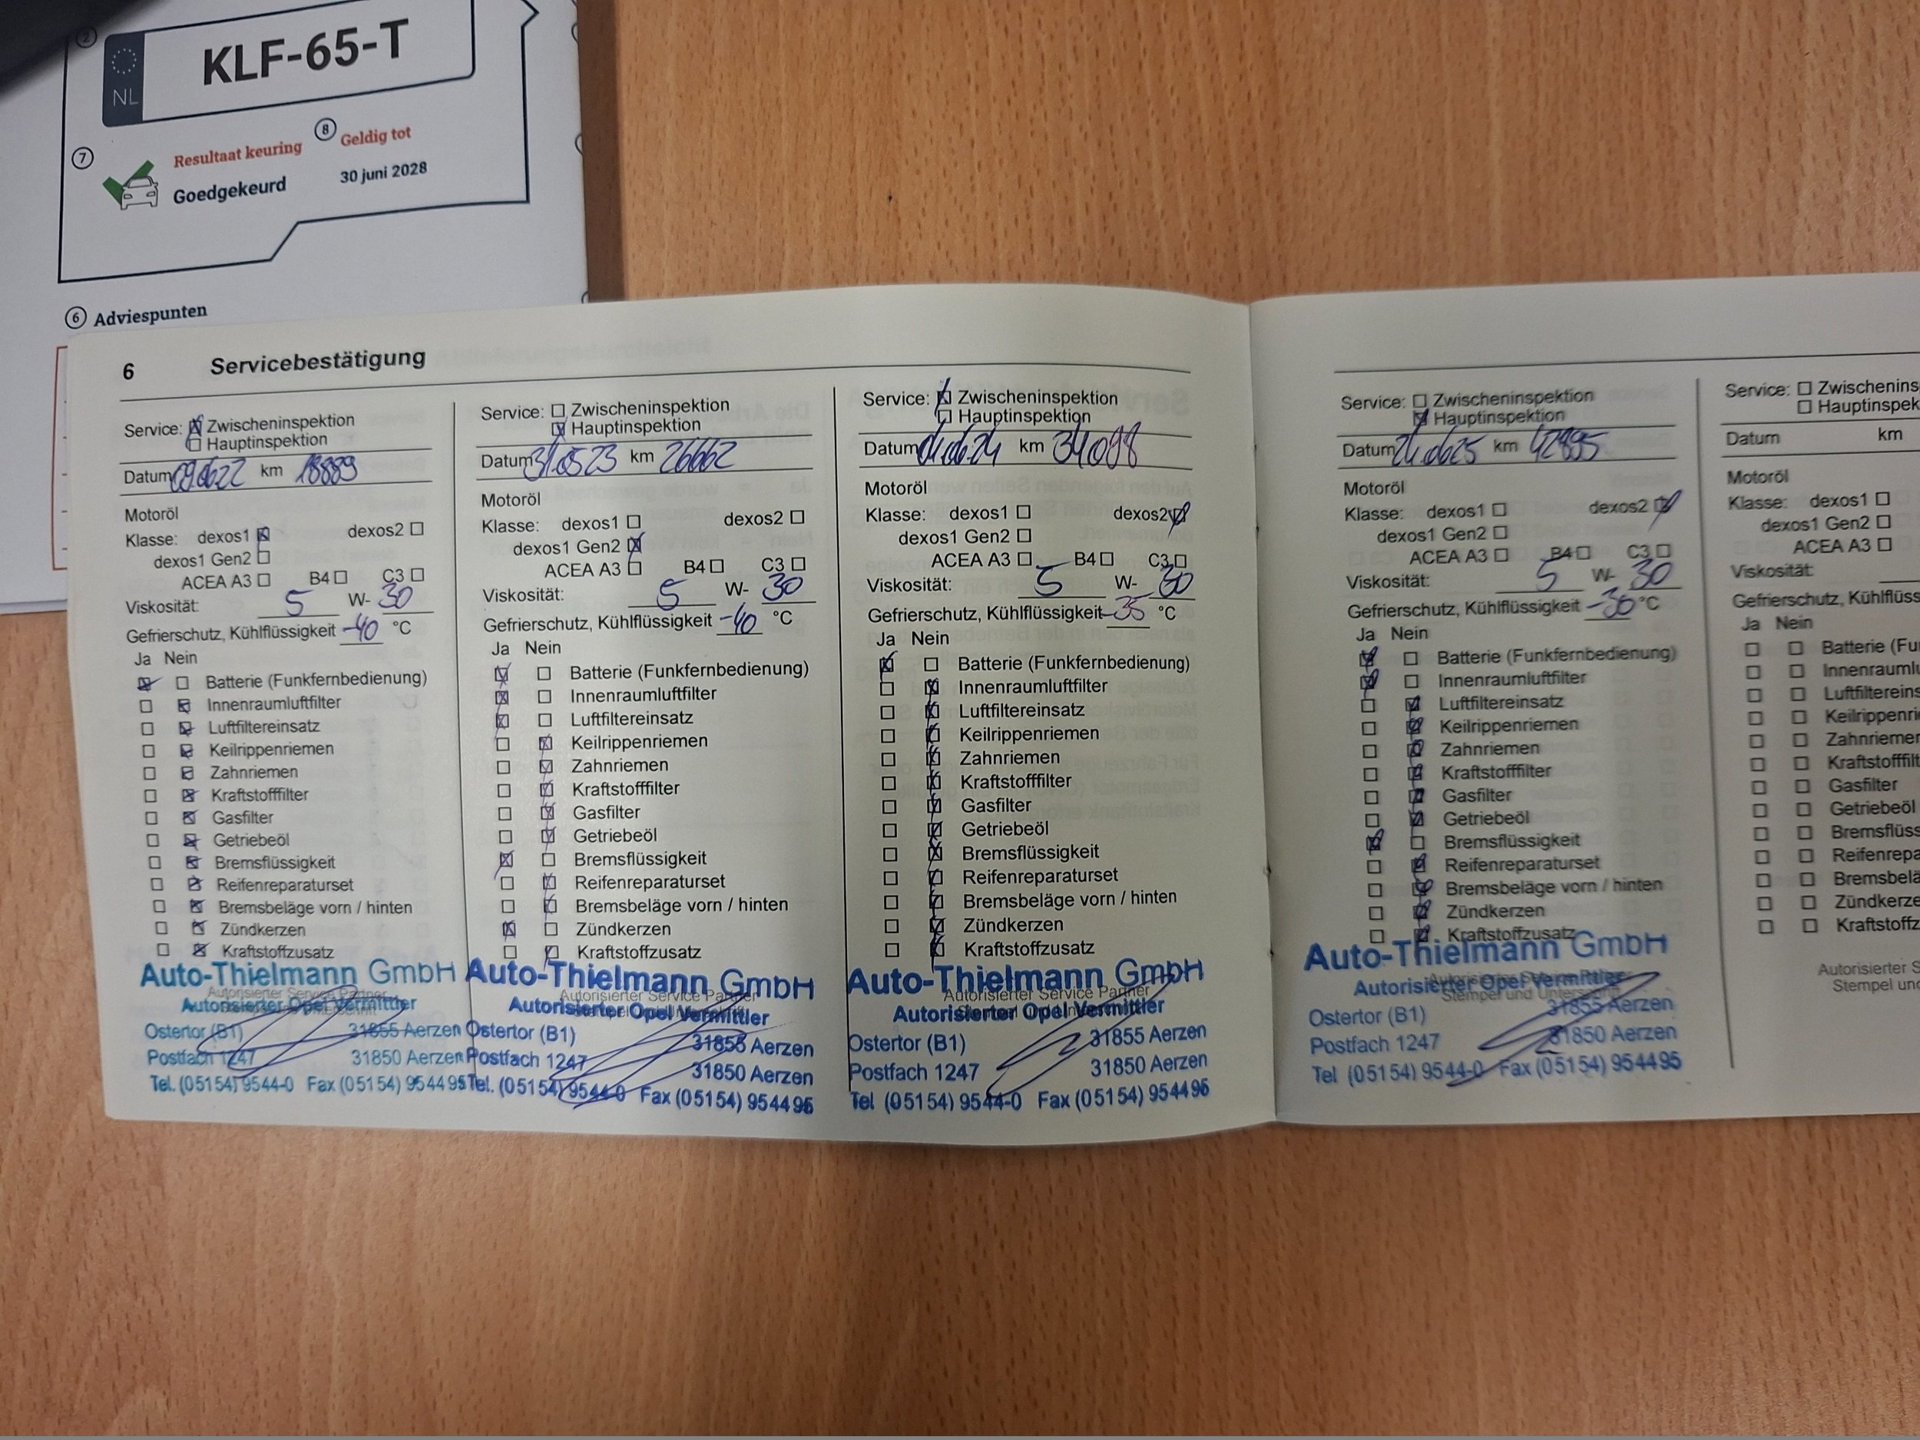 NL
KLF-65-T
7
Resultaat keuring
Goedgekeurd
8
Geldig tot
30 juni 2028
6 Adviespunten
6 Servicebestätigung
Service: Zwischeninspektion
Hauptinspektion
Datum 09.06.22 km 18889
Motoröl
Klasse: dexos1 dexos2
dexos1 Gen2
ACEA A3 B4 C3
Viskosität: 5 W- 30
Gefrierschutz, Kühlflüssigkeit -40 °C
Ja Nein
Batterie (Funkfernbedienung)
Innenraumluftfilter
Luftfiltereinsatz
Keilrippenriemen
Zahnriemen
Kraftstofffilter
Gasfilter
Getriebeöl
Bremsflüssigkeit
Reifenreparaturset
Bremsbeläge vorn / hinten
Zündkerzen
Kraftstoffzusatz
Auto-Thielmann GmbH
Autorisierter Service Partner
Autorisierter Opel Vermittler
Ostertor (B1) 31855 Aerzen
Postfach 1247 31850 Aerzen
Tel. (05154) 9544-0 Fax (05154) 954495
Service: Zwischeninspektion
Hauptinspektion
Datum 31.05.23 km 26662
Motoröl
Klasse: dexos1 dexos2
dexos1 Gen2
ACEA A3 B4 C3
Viskosität: 5 W- 30
Gefrierschutz, Kühlflüssigkeit -40 °C
Ja Nein
Batterie (Funkfernbedienung)
Innenraumluftfilter
Luftfiltereinsatz
Keilrippenriemen
Zahnriemen
Kraftstofffilter
Gasfilter
Getriebeöl
Bremsflüssigkeit
Reifenreparaturset
Bremsbeläge vorn / hinten
Zündkerzen
Kraftstoffzusatz
Auto-Thielmann GmbH
Autorisierter Service Partner
Autorisierter Opel Vermittler
Ostertor (B1) 31855 Aerzen
Postfach 1247 31850 Aerzen
Tel. (05154) 9544-0 Fax (05154) 954495
Service: Zwischeninspektion
Hauptinspektion
Datum 04.06.24 km 34098
Motoröl
Klasse: dexos1 dexos2
dexos1 Gen2
ACEA A3 B4 C3
Viskosität: 5 W- 30
Gefrierschutz, Kühlflüssigkeit -35 °C
Ja Nein
Batterie (Funkfernbedienung)
Innenraumluftfilter
Luftfiltereinsatz
Keilrippenriemen
Zahnriemen
Kraftstofffilter
Gasfilter
Getriebeöl
Bremsflüssigkeit
Reifenreparaturset
Bremsbeläge vorn / hinten
Zündkerzen
Kraftstoffzusatz
Auto-Thielmann GmbH
Autorisierter Service Partner
Autorisierter Opel Vermittler
Ostertor (B1) 31855 Aerzen
Postfach 1247 31850 Aerzen
Tel (05154) 9544-0 Fax (05154) 954495
Service: Zwischeninspektion
Hauptinspektion
Datum 24.06.25 km 42895
Motoröl
Klasse: dexos1 dexos2
dexos1 Gen2
ACEA A3 B4 C3
Viskosität: 5 W- 30
Gefrierschutz, Kühlflüssigkeit -30 °C
Ja Nein
Batterie (Funkfernbedienung)
Innenraumluftfilter
Luftfiltereinsatz
Keilrippenriemen
Zahnriemen
Kraftstofffilter
Gasfilter
Getriebeöl
Bremsflüssigkeit
Reifenreparaturset
Bremsbeläge vorn / hinten
Zündkerzen
Kraftstoffzusatz
Auto-Thielmann GmbH
Autorisierter Opel Vermittler
Stempel und
Ostertor (B1) 31855 Aerzen
Postfach 1247 31850 Aerzen
Tel (05154) 9544-0 Fax (05154) 954495
Service: Zwischenins
Hauptinspek
Datum km
Motoröl
Klasse: dexos1
dexos1 Gen2
ACEA A3
Viskosität:
Gefrierschutz, Kühlflüss
Ja Nein
Batterie (Fu
Innenraumlu
Luftfiltereins
Keilrippenri
Zahnriemen
Kraftstofffilt
Gasfilter
Getriebeöl
Bremsflüss
Reifenrepa
Bremsbelä
Zündkerze
Kraftstoffz
Autorisierter S
Stempel und